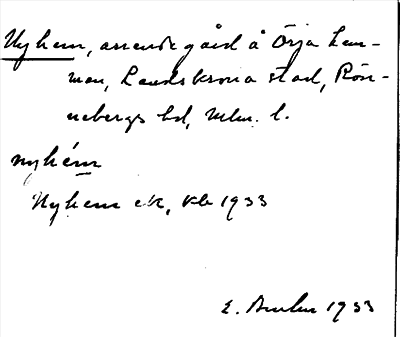 Nyhem, arrendegård å Örja Len-
men, Landskrona stad, Rön-
nebergs hd, Mlm. l.
nyhém
Nyhem ek, kb 1933
E. 1933